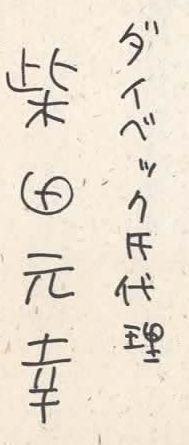 ダイベック氏代理
柴田元幸